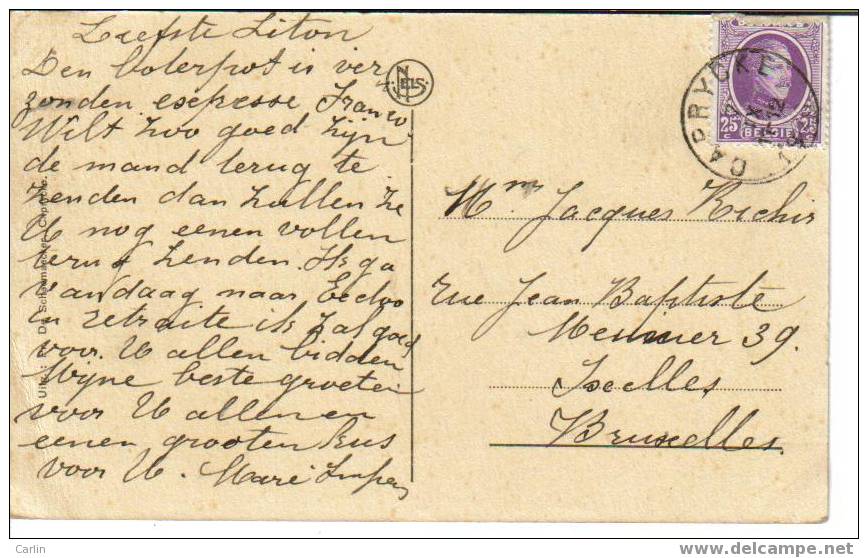 Liefste Liton
Den boterpot is ver
zonden expresse Franco
Wilt zoo goed zijn
de mand terug te
zenden dan zullen ze
U nog eenen vollen
terug zenden. Ik ga
vandaag naar Eecloo
in retraite ik zal goed
voor U allen bidden
Mijne beste groeten
voor U allen en
eenen grooten kus
voor U. Marie
NELS
Uitg. De Schaemaecker, Caprycke.
CAPRYCKE
25c 25c
BELGIË
Mr Jacques Richir
rue Jean Baptiste
Meunier 39.
Ixelles
Bruxelles
Carlin
www.delcampe.net